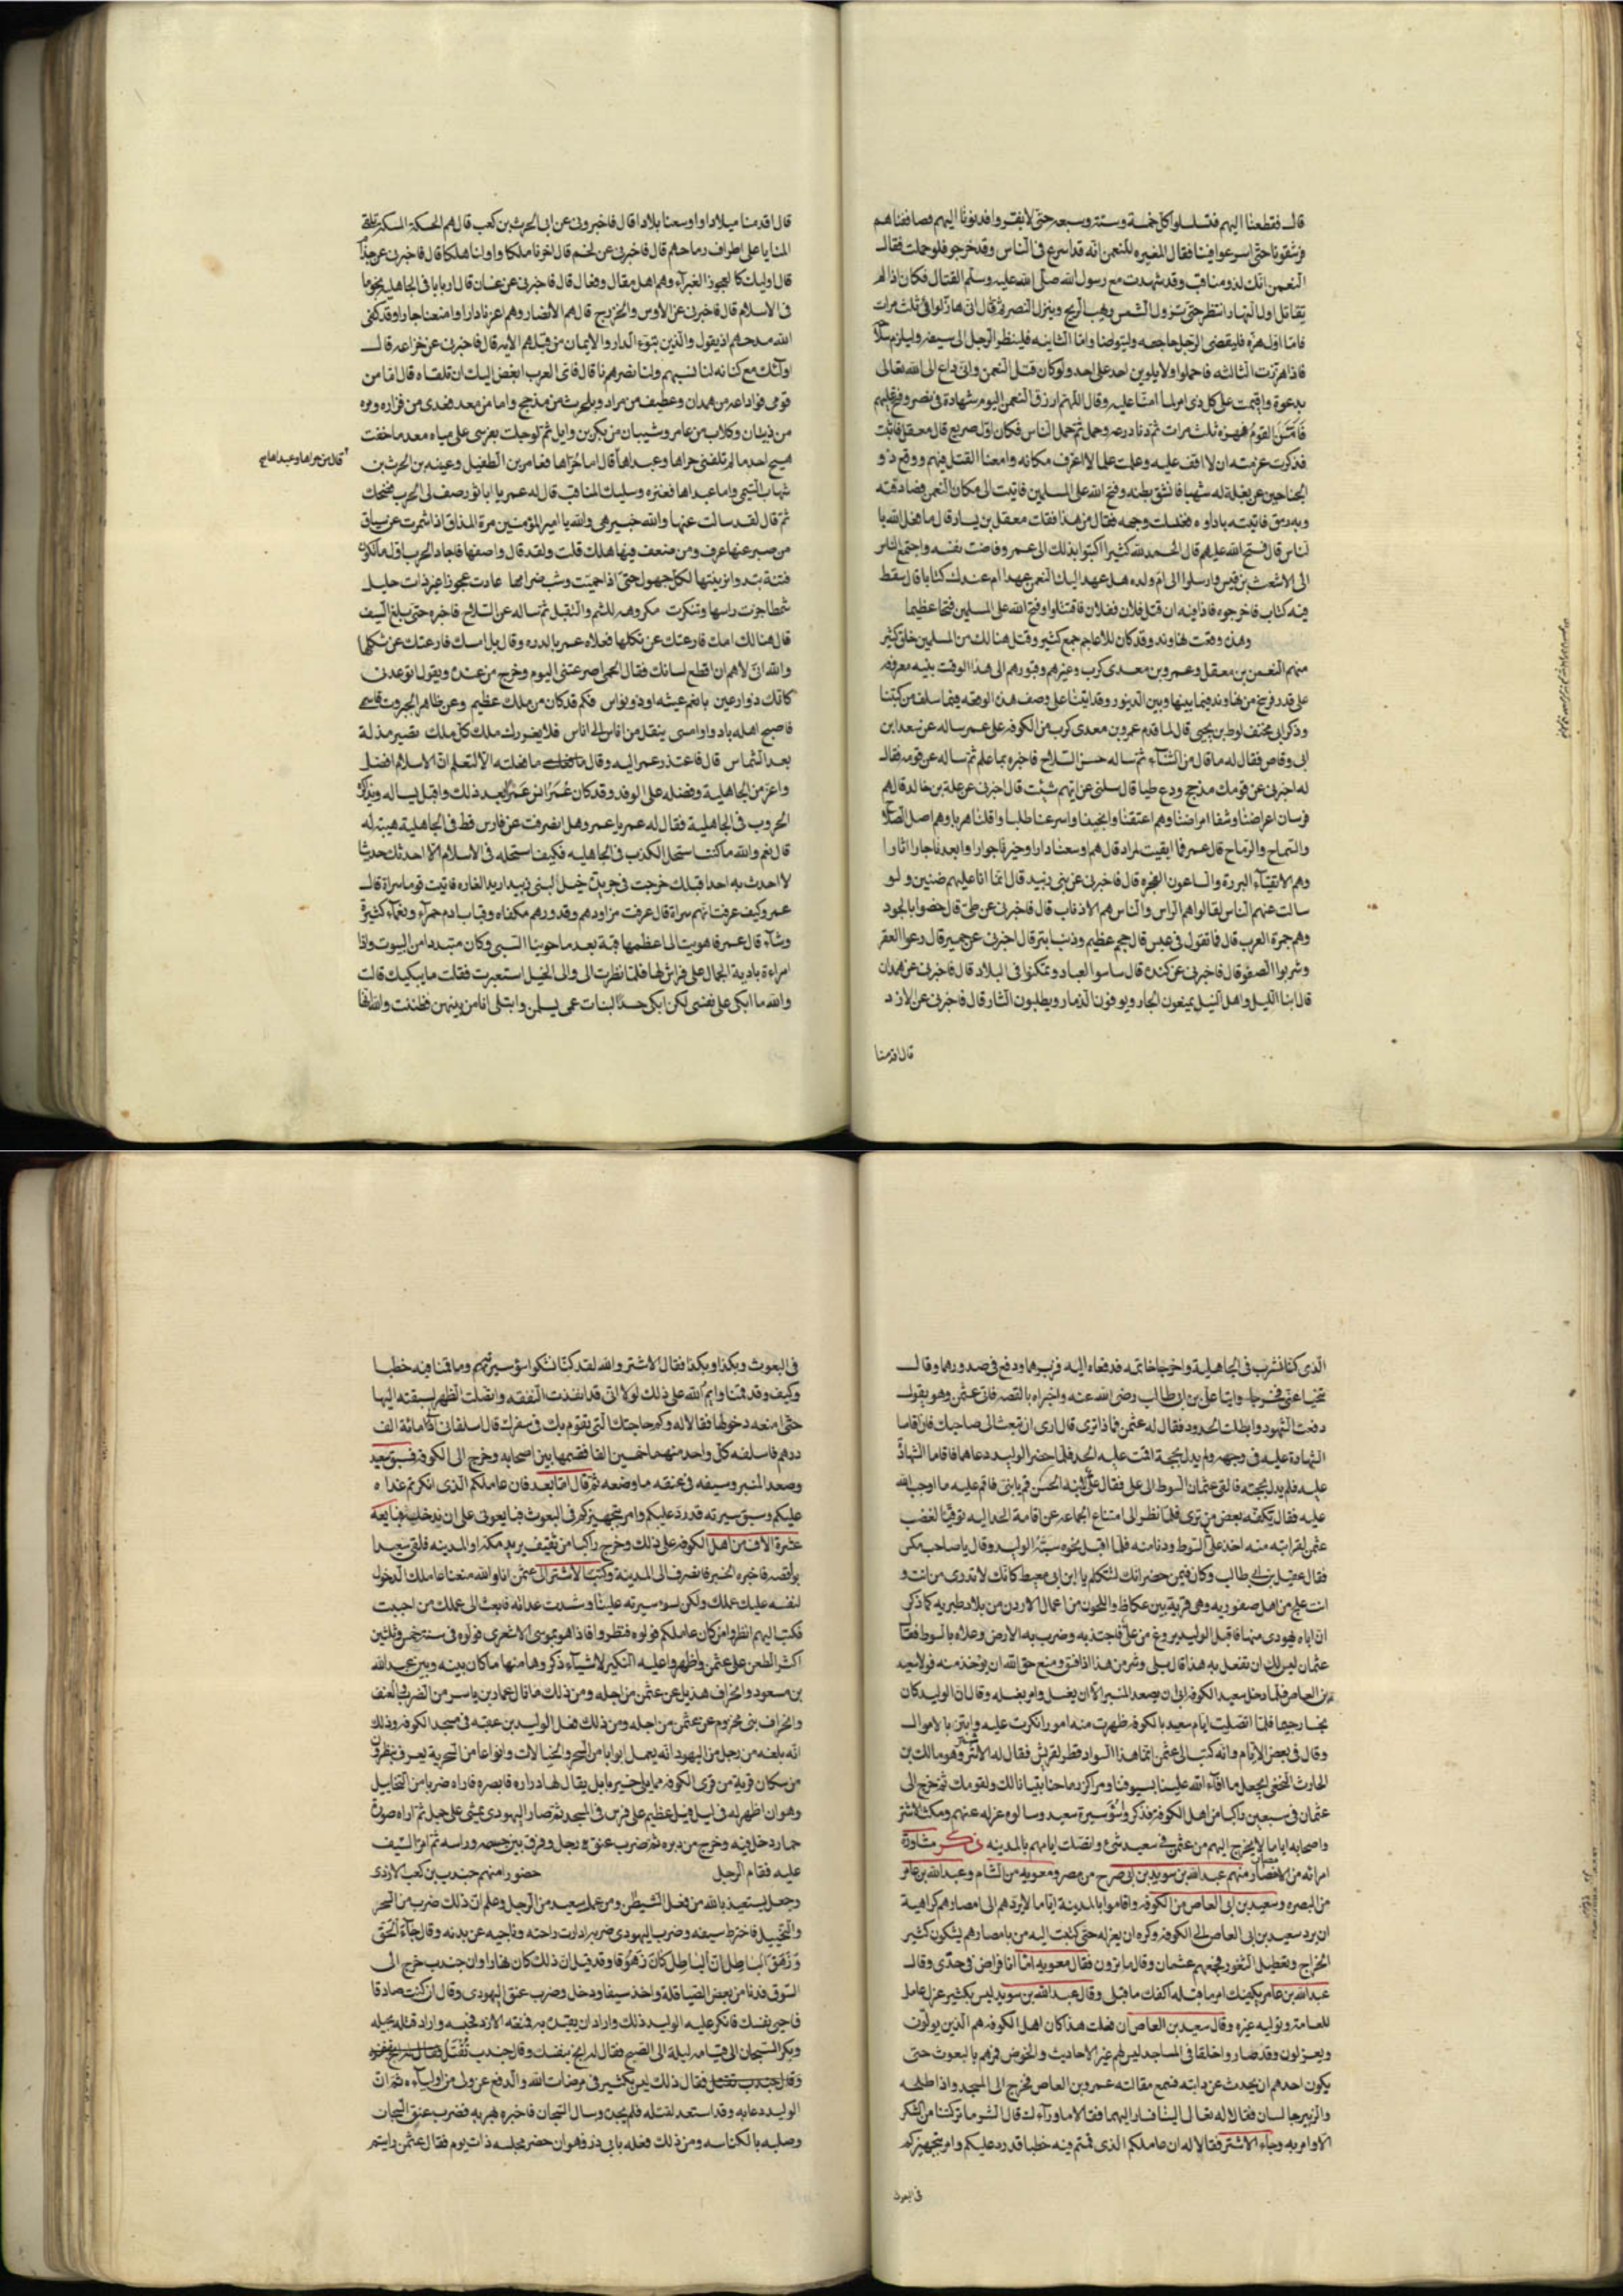 قال فقطعنا اليهم فتسلسلوا كل خمسة وستة وسبعة حتى لا يفروا فدنونا اليهم فصاففناهم
فرشقونا حتى اسرعوا فينا فقال المغيره للنعمن انه قد اسرع فى الناس وقد خرجو فلو حملت فقال
النعمن انك لذو مناقب وقد شهدت مع رسول الله صلى الله عليه وسلم القتال فكان اذا لم
يقاتل اول النهار انتظر حتى تزول الشمس وتهب الريح وينزل النصر ثم قال انى هاز لوائى ثلث مرات
فاما اول هزه فليقضى الرجل حاجته وليتوضا واما الثانيه فلينظر الرجل الى سيفه وليلزم سلا
فاذا هززت الثالثه فاحملوا ولا يلوين احد على احد ولو كان قتل النعمن وانى داع الى الله تعالى
بدعوة واقسمت على كل ذى امر لما امنا عليه وقال اللهم ارزق النعمن اليوم شهادة فى نصر وفتح عليهم
فامن القوم فهزه ثلث مرات ثم دنا درعه وحمل ثم حمل الناس فكان اول صريع قال معقل فاتيت
فذكرت عزمته ان لا اقف عليه وعلمت علما لا اعرف مكانه وامعنا القتل فيهم ووقع ذو
الجناحين عن بغلة له شهبا فانشق بطنه وفتح الله على المسلمين فاتيت الى مكان النعمن فصادفته
وبه رمق فاتيته باداوه فغسلت وجهه فقال من هذا فقلت معقل بن يسار قال ما فعل الله با
لناس قال فتح الله عليهم قال الحمد لله كثيرا اكتبوا بذلك الى عمر وفاضت نفسه واجتمع الناس
الى الاشعث بن قيس وارسلوا الى ام ولده هل عهد اليك النعمن عهدا ام عندك كتابا قال سفط
فيه كتاب فاخرجوه فاذا فيه ان قتل فلان ففلان فاقتتلوا وفتح الله على المسلمين فتحا عظيما
وهذه وقعت نهاوند وقد كان للاعاجم جمع كثير وقتل هنالك من المسلمين خلق كثير
منهم النعمن بن معقل وعمرو بن معدى كرب وغيرهم وقبورهم الى هذا الوقت بينه معرفه
على قدر فرسخ من نهاوند فيما بينها وبين الدينور وقد اتينا على وصف هذه الوقعه فيما سلف من كتبنا
وذكر ابى مخنف لوط بن يحيى قال لما قدم عمرو بن معدى كرب من الكوفه على عمر ساله عن سعد ابن
ابى وقاص فقال له ما قال من الثنآء ثم ساله حسن السلاح فاخبره بما علم ثم ساله عن قومه فقال
له اخبرنى عن قومك مذحج ودع طيا قال سلنى عن ايهم شئت قال اخبرنى عن علة بن خالد قال هم
فرسان اعراضنا وشفا امراضنا وهم اعتقنا وانجبنا واسرعنا طلبا واقلنا هربا وهم اصل السلاح
والسماح والرماح قال عمر فما ابقيت لمراد قال هم اوسعنا دارا وخيرنا جوارا وابعدنا اثارا
وهم الاتقيآء البررة والساعون الفخره قال فاخبرنى عن بنى زبيد قال انما انا عليهم ضنين ولو
سالت عنهم الناس لقالوا هم الراس والناس هم الاذناب قال فاخبرنى عن طى قال خصوا بالجود
وهم جمرة العرب قال فما تقول فى عبس قال حجم عظيم وذنب ابتر قال اخبرنى عن حمير قال رعوا العفو
وشربوا الصفو قال فاخبرنى عن كنده قال ساسوا العباد وتمكنوا فى البلاد قال فاخبرنى عن همدان
قال ابنا الليل واهل النيل يمنعون الجار ويوفون الذمار ويطلبون الثار قال فاخبرنى عن الازد
قال اقدمنا
قال اقدمنا ميلادا واوسعنا بلادا قال فاخبرونى عن ابى الحرث بن كعب قال هم الحسكة المسكة تلقى
المنايا على اطراف رماحهم قال فاخبرنى عن لخم قال اخرنا ملكا واولنا هلكا قال فاخبرنى عن جذام
قال اوليك كا لعجوز الغبرآء وهم اهل مقال وفعال قال فاخبرنى عن غسان قال اربابا فى الجاهليه نجوما
فى الاسلام قال فاخبرنى عن الاوس والخزرج قال هم الانصار وهم اعزنا دارا وامنعنا جارا وقد كفى
الله مدحهم اذ يقول والذين تبوء الدار والايمان من قبلهم الايه قال فاخبرنى عن خزاعه قال
اولئك مع كنانه لنا نسبهم ولنا نصرهم نا قال فاى العرب ابغض اليك ان تلقاه قال اما من
قومى فوادعه من همدان وغطيف من مراد وبلحرث من مذحج واما من معد فعدى من فزاره ومره
من ذبيان وكلاب من عامر وشيبان من بكر بن وايل ثم لو جلت بفرسى على مياه معد ما خفت
هيج احد ما لم تلقنى حراها وعبداها قال اما حراها فعامر بن الطفيل وعيينه بن الحرث بن
قال من حراها وعبداها صح
شهاب التيمى واما عبداها فعنتره وسليك المناقب قال له عمر يا ابا ثور صف لى الحرب فضحك
ثم قال لقد سالت عنها والله خبير هى والله يا امير المؤمنين مرة المذاق اذا شمرت عن ساق
من صبر عنها عرف ومن ضعف فيها هلك قلت ولقد قال واصفها فاجاد الحرب اول ما تكون
فتنة تبدوا بزينتها لكل جهول حتى اذا حميت وشب ضرامها عادت عجوزا غير ذات حليل
شمطا جزت راسها وتنكرت مكروهه للشم والتقبل ثم ساله عن السلاح فاخبره حتى بلغ السيف
قال هنالك امك قارعتك عن ثكلها فعلاه عمر بالدره وقال بل امسك قارعتك عن ثكلها
والله انى لاهم ان اقطع لسانك فقال الحمى صرعتنى اليوم وخرج من عنده ويقول اتوعدنى
كانك ذو رعين بانعم عيشه او ذو نواس فكم قد كان من ملك عظيم وعن ظاهر الجبروت قاسى
فاصبح اهله بادوا وامسى ينقل من اناس الى اناس فلا يغررك ملك كل ملك يصير مذلة
بعد الشماس قال فاعتذر عمر اليه وقال ما فعلت ما فعلته الا لتعلم ان الاسلام افضل
واعز من الجاهلية وفضله على الوفد وقد كان عمر انس عمرا بعد ذلك واقبل يساله ويذاكره
الحروب فى الجاهلية فقال له عمر يا عمرو هل انصرفت عن فارس قط فى الجاهلية هيبة له
قال نعم والله ما كنت استحل الكذب فى الجاهليه فكيف استحله فى الاسلام الا احدثك حديثا
لا احدث به احدا قبلك خرجت فى جريدة خيل لبنى زبيد اريد الغاره فاتيت قوما سراة قال
عمر وكيف عرفت انهم سراة قال عرفت مزاود هم وقدورهم مكفاه وقباب ادم حمرآء ونعمآء كثيرة
وشآء قال عمر فاهويت الى اعظمها قبة بعد ما حوينا السبى وكان متبددا من البيوت واذا
امراءة بادية الجمال على فراش لها فلما نظرت الى والى الخيل استعبرت فقلت ما يبكيك قالت
والله ما ابكى على نفسى لكن ابكى حسدا لبنات عمى يسلمن وابتلى انا من بينهن فظننت والله انها
الذى كنا نشرب فى الجاهلية واخرجا خاتمه فدفعاه اليه فزبرهما ودفع فى صدورهما وقال
تنحيا عنى فخرجا واتيا على بن ابى طالب رضى الله عنه واخبراه بالقصه فاتى عثمن وهو يقول
دفعت الشهود وابطلت الحدود فقال له عثمن فماذا ترى قال ارى ان تبعث الى صاحبك فان اقاما
الشهادة عليه فى وجهه ولم يدل بحجة اقمت عليه الحد فلما حضر الوليد دعاهما فاقاما الشهادة
عليه فلم يدل بحجته فالقى عثمان السوط الى على فقال على لابنه الحسن قم يا بنى فاقم عليه ما اوجب الله
عليه فقال يكفيه بعض من ترى فلما نظر الى امتناع الجماعه عن اقامة الحد اليه توقيا لغضب
عثمن لقرابته منه اخذ على السوط ودنا منه فلما اقبل نحوه سبه الوليد وقال يا صاحب مكس
فقال عقيل بن ابى طالب وكان فيمن حضر انك لتتكلم يا ابن ابى معيط كانك لا تدرى من انت و
انت علج من اهل صفوريه وهى قرية بين عكا واللجون من اعمال الاردن من بلاد طبريه كما ذكر
ان اباه يهودى منها فاقبل الوليد يروغ من على فاجتذبه وضرب به الارض وعلاه بالسوط فقال
عثمان ليس لك ان تفعل به هذا قال بلى وشر من هذا اذا فسق ومنع حق الله ان يوخذ منه فولا سعيد
بن العاص فلما دخل سعيد الكوفه ابى ان يصعد المنبر الا ان يغسل وامر بغسله وقال ان الوليد كان
نجسا رجيما فلما اتصلت ايام سعيد بالكوفه ظهرت منه امور انكرت عليه وابتز بالاموال
وقال فى بعض الايام وانه كتب الى عثمن انما هذا السواد قطر لقريش فقال له الاشتر وهو مالك بن
الحارث النخعى اتجعل ما افآء الله علينا بسيوفنا ومراكز رماحنا بستانا لك ولقومك ثم خرج الى
عثمان فى سبعين راكبا من اهل الكوفه فذكر واسؤسيرة سعيد وسالوه عزله عنهم ومكث الاشتر
واصحابه اياما لا يخرج اليهم من عثمن فى سعيد شئ واتصلت ايامهم بالمدينه ذكر مشاورة
امرائه من الامصار منهم عبد الله بن سويد بن ابى صرح من مصر ومعويه من الشام وعبد الله بن عامر
من البصره وسعيد بن ابى العاص من الكوفه واقاموا بالمدينة اياما لا يردهم الى امصارهم كراهية
ان يرد سعيد بن ابى العاص الى الكوفه وكره ان يعزله حتى كتبت اليه من بامصارهم يشكون كثير
الخراج وتعطيل الثغور فجمعهم عثمان وقال ما ترون فقال معويه اما انا فراض فى جندى وقال
عبد الله بن عامر يكفيك امر ما قبله اكفك ما قبلى وقال عبد الله بن سويد ليس بكثير عزل عامل
للعامة وتوليه غيره وقال سعيد بن العاص ان فعلت هذا كان اهل الكوفه هم الذين يولون
ويعزلون وقد صاروا خلقا فى المساجد ليس لهم غير الاحاديث والخوض فمرهم بالبعوث حتى
يكون احدهم ان يحدث عن دابته فسمع مقالته عمرو بن العاص فخرج الى المسجد واذا طلحه
والزبير جالسان فقالا له تعال الينا فسار اليهما فقالا ما وراءك قال الشر ما تركتنا من المنكر
الا وامر به وجاء الاشتر فقالا له ان عاملكم الذى قمتم فيه خطبا قد رد عليكم وامر بتجهيزكم
فى البعوث
فى البعوث وبكذا وبكذا فقال الاشتر والله لقد كنا نشكوا سؤ سيرتهم وما قمنا فيه خطبا
وكيف وقد قمنا وايم الله على ذلك لولا انى قد انفذت النفقه وانضلت الظهر لسبقته اليها
حتى امنعه دخولها فقالا له وكم حاجتك التى تقوم بك فى سفرك قال اسلفانى كما مائة الف
درهم فاسلفه كل واحد منهما خمسين الفا فقسمها بين اصحابه وخرج الى الكوفه فسبق سعيد
وصعد المنبر وسيفه فى عنقه ما وضعه ثم قال اما بعد فان عاملكم الذى انكرتم غداه
عليكم وسوء سيرته قد رد عليكم وامر بتجهيزكم فى البعوث فبايعونى على ان لا يدخلها فبايعه
عشرة الاف من اهل الكوفه على ذلك وخرج راكبا من ثقيف يريد مكة او المدينه فلقى سعيدا
بواقصه فاخبره الخبر فانصرف الى المدينة وكتب الاشتر الى عثمن انا والله منعنا عاملك الدخول
لنفسه عليك عملك ولكن لسوء سيرته علينا وشدت عدائه فابعث الى عملك من احببت
فكتب اليهم انظروا من كان عاملكم فولوه فنظروا فاذا هو ابو موسى الاشعرى فولوه فى سنة خمس وثلثين
اكثر الطعن على عثمن واظهروا عليه النكير لاشيآء ذكروها منها ما كان بينه وبين عبد الله
بن مسعود وانحراف هذيل عن عثمن من اجله ومن ذلك ما نال عمار بن ياسر من الضرب بالعنف
وانحراف بنى مخزوم عن عثمن من اجله ومن ذلك فعل الوليد بن عقبه فى مسجد الكوفه وذلك
انه بلغه من رجل من اليهود انه يعمل ابوابا من السحر والخيالات وانواعا من السحرية يعرف بنطروى
من سكان قرية من قرى الكوفه مما يلى جسر بابل يقال لها دراره فابصره فاراه ضربا من التخاييل
وهو ان اظهر له فى ليل فيل عظيم على فرس فى المسجد ثم صار اليهودى يمشى على حبل ثم اراه صورة
حمار دخل فيه وخرج من دبره ثم ضرب عنق رجل وفرق بين جسمه وراسه ثم امر السيف
عليه فقام الرجل حضور امنهم جندب بن كعب الازدى
وجعل يستعيذ بالله من فعل الشيطن ومن عمل يبعد من الرجل وعلم ان ذلك ضرب من السحر
والتخييل فاخترط سيفه وضرب اليهودى ضربه ادارت راحته وناحيه عن بدنه وقال جآء الحق
وزهق الباطل ان الباطل كان زهوقا وقد قيل ان ذلك كان نهارا وان جندب خرج الى
السوق فدنا من بعض الصياقلة واخذ سيفا ودخل وضرب عنق اليهودى وقال ان كنت صادقا
فاحيى نفسك فانكر عليه الوليد ذلك واراد ان يقيده به فمنعه الازد فحبسه واراد قتله بحيله
وبكر السجان الى قيامه ليلة الى الصبح فقال له انج بنفسك وقال جندب تقتل
فقال ذلك ليس بكثير فى مرضات الله والدفع عن ولى من اوليآءه ثم ان
الوليد دعا به وقد استعد لقتله فلم يجده وسال السجان فاخبره بهربه فضرب عنق السجان
وصلبه بالكناسه ومن ذلك فعله بابى ذر وهو ان حضر مجلسه ذات يوم فقال عثمن رايتم